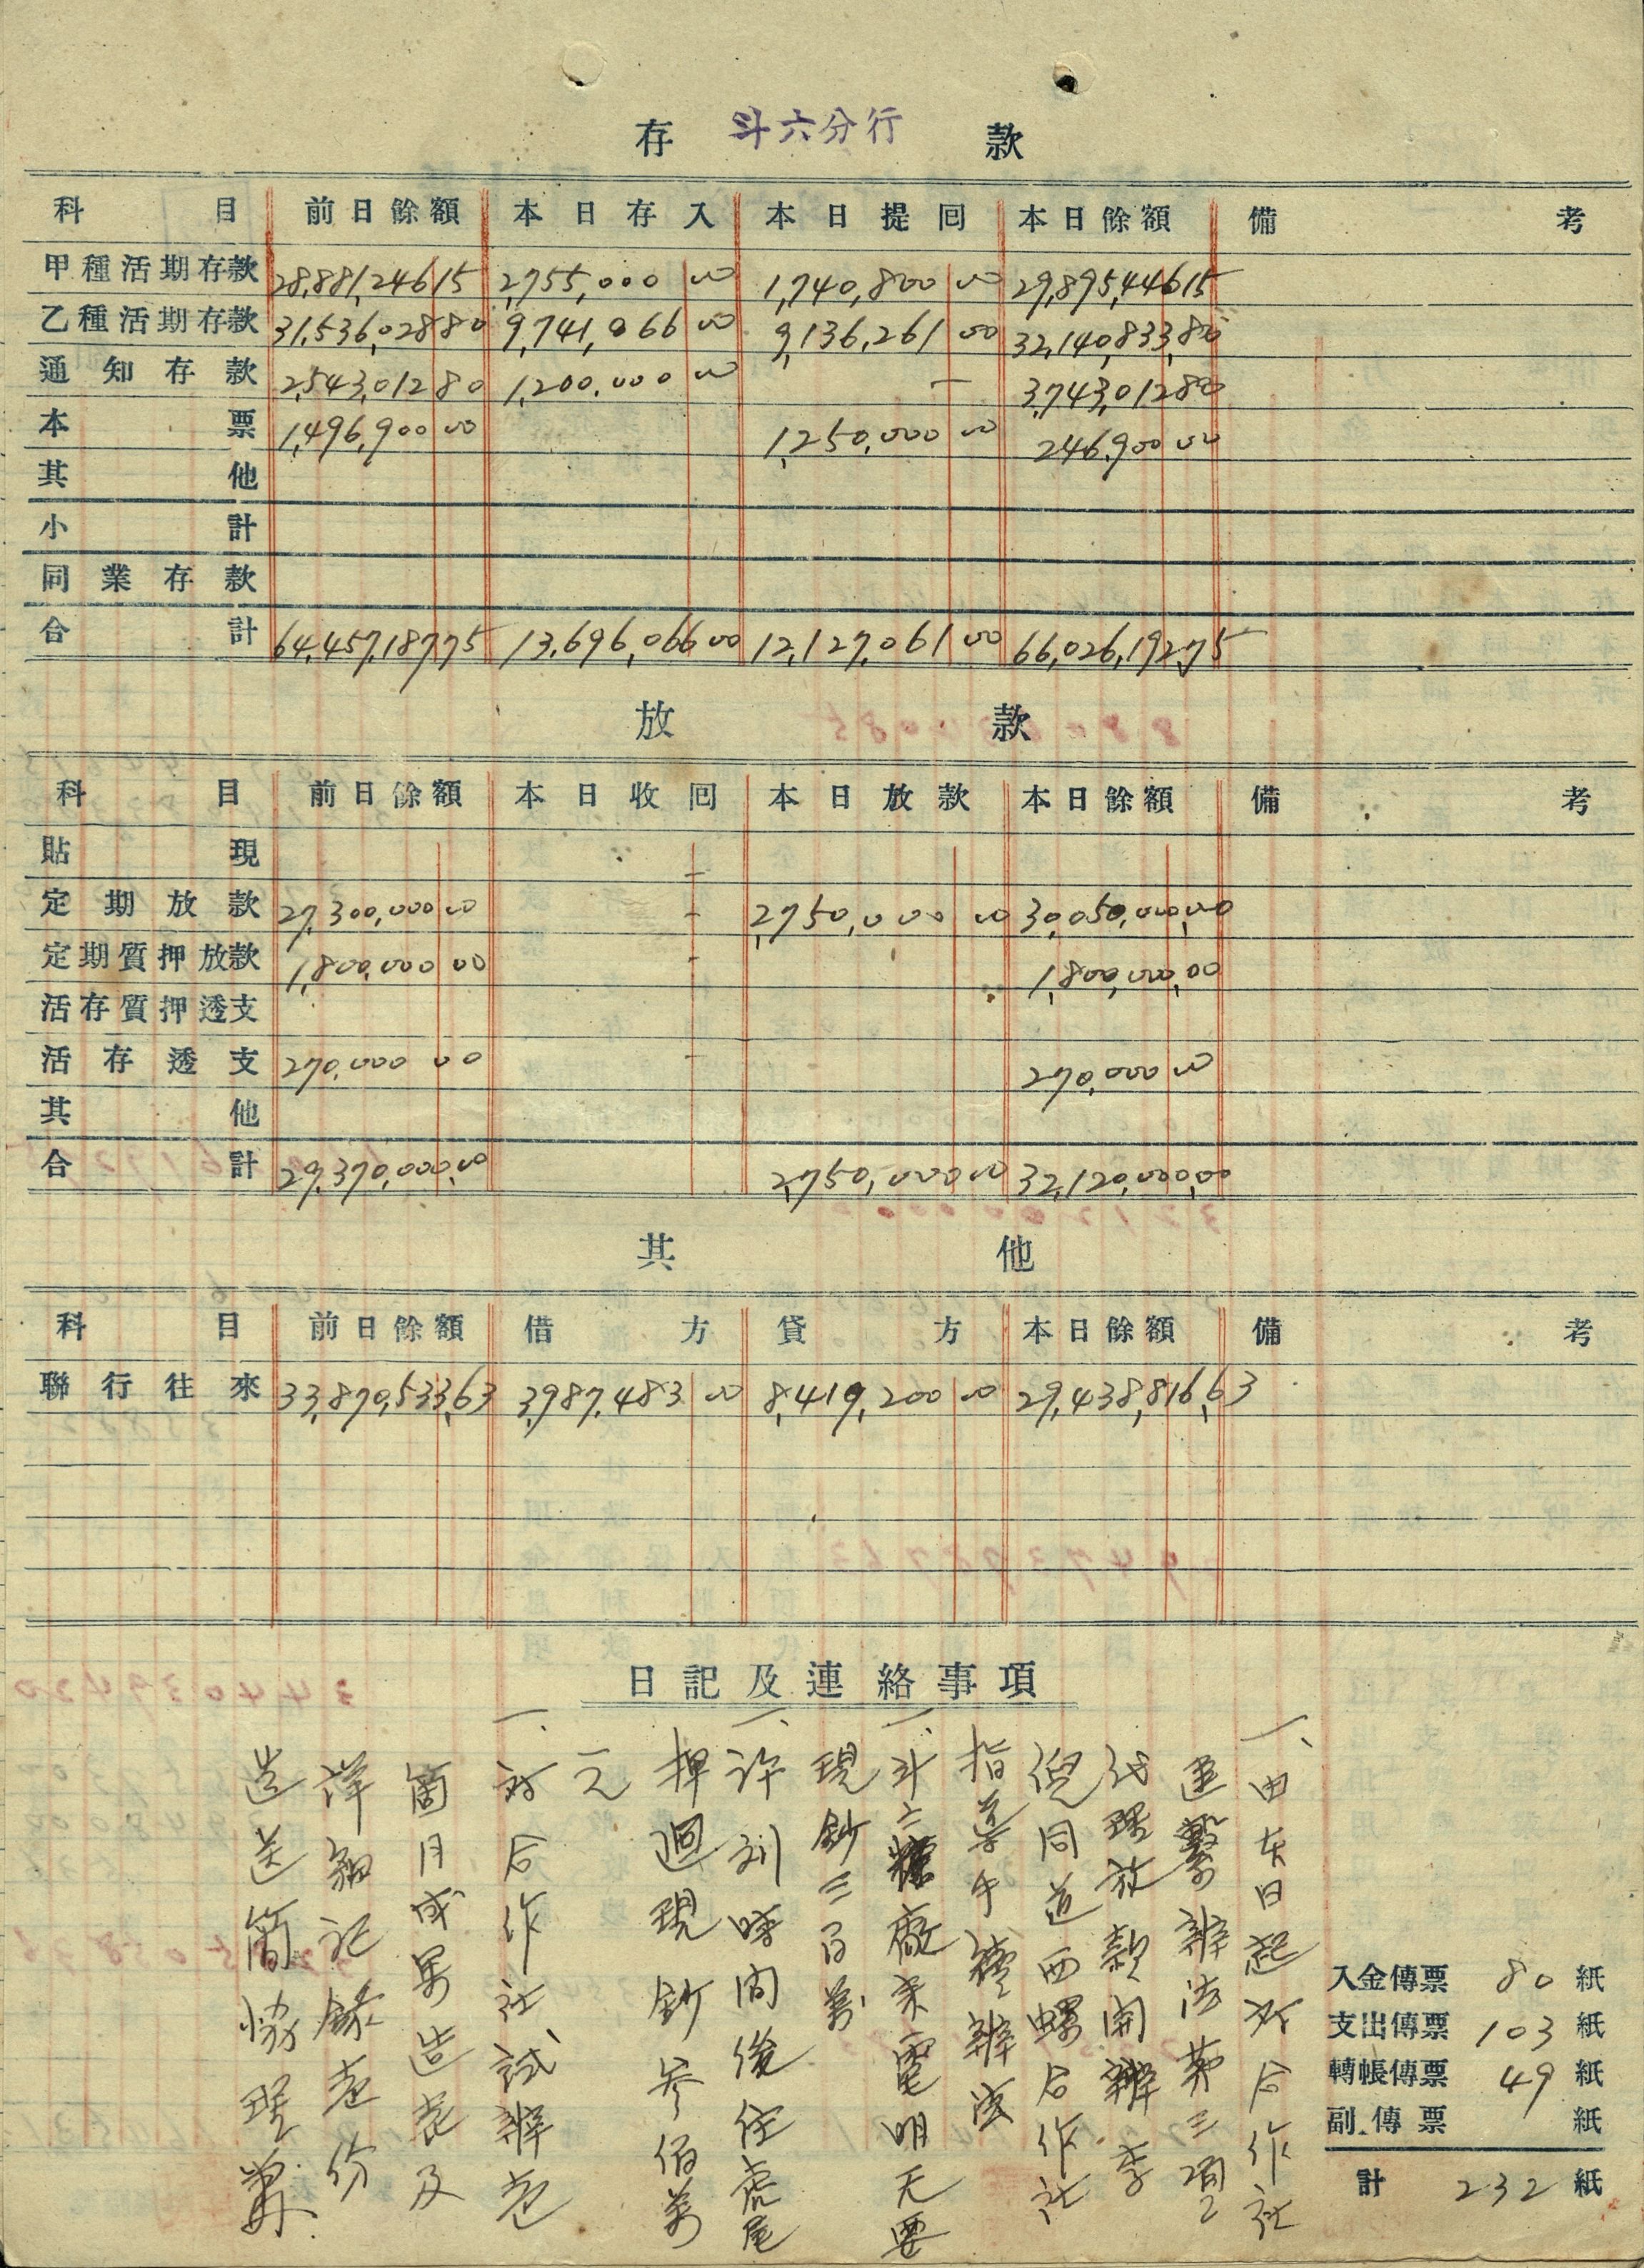 存 斗六分行 款
科目 前日餘額 本日存入 本日提囘 本日餘額 備考
甲種活期存款 28,881,246 15 2,755,000 00 1,740,800 00 29,895,446 15
乙種活期存款 31,536,028 80 9,741,066 00 9,136,261 00 32,140,833,80
通知存款 2,543,012 80 1,200,000 00 — 3,743,012 80
本票 1,496,900 00 1,250,000 00 246,900 00
其他
小計
同業存款
合計 64,457,187 75 13,696,066 00 12,127,061 00 66,026,192,75
放款
科目 前日餘額 本日收囘 本日放款 本日餘額 備考
貼現 -
定期放款 27,300,000 00 - 2,750,000 00 30,050,000,00
定期質押放款 1,800,000 00 - 1,800,000,00
活存質押透支
活存透支 270,000 00 - 270,000 00
其他
合計 29,370,000,00 2,750,000 00 32,120,000,00
其他
科目 前日餘額 借方 貸方 本日餘額 備考
聯行往來 33,870,533,63 3,987,483 00 8,419,200 00 29,438,816,63
日記及連絡事項
一、由本日起对合作社
連繫辦法第三項之
代理放款開辦 李
倪同道西螺合作社
指導手續辦法
一、斗六糖廠來電明天要
現鈔三百萬
一、許 時間後往虎尾
押迴現鈔參佰萬
元
一、对合作社試辦壱
箇月成果造表及
詳細記錄壱份
送 協理
入金傳票 80 紙
支出傳票 103 紙
轉帳傳票 49 紙
副傳票 紙
計 232 紙